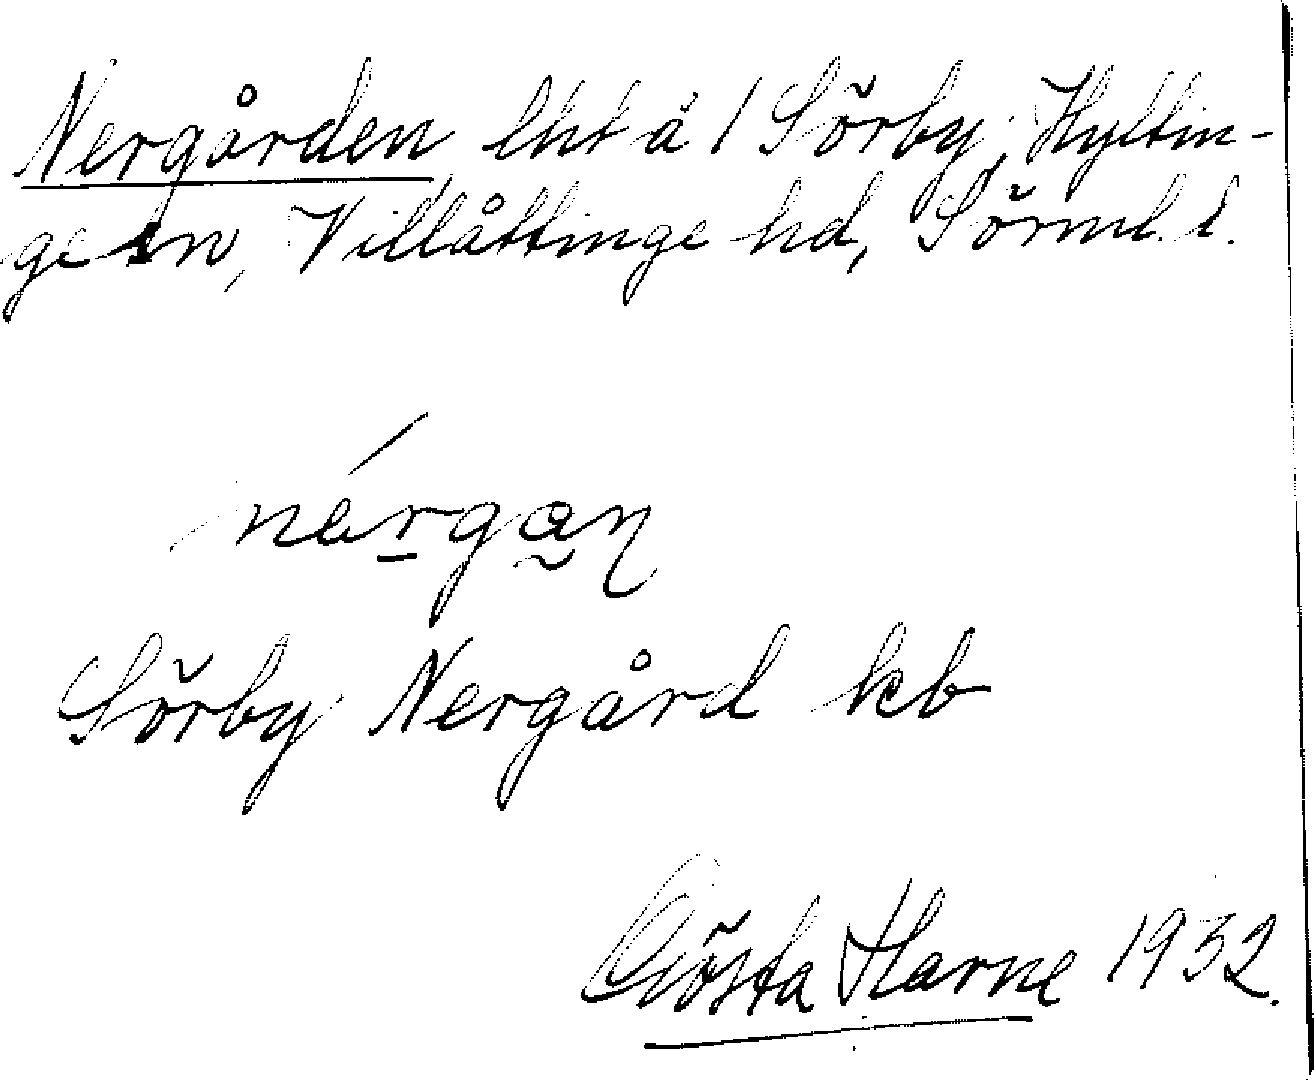 Nergården lht å 1 Sörby, Hyltin-
ge sn, Villåttinge hd, Sörml. l.
nérgan
Sörby Nergård kb
Gösta Harne 1932.